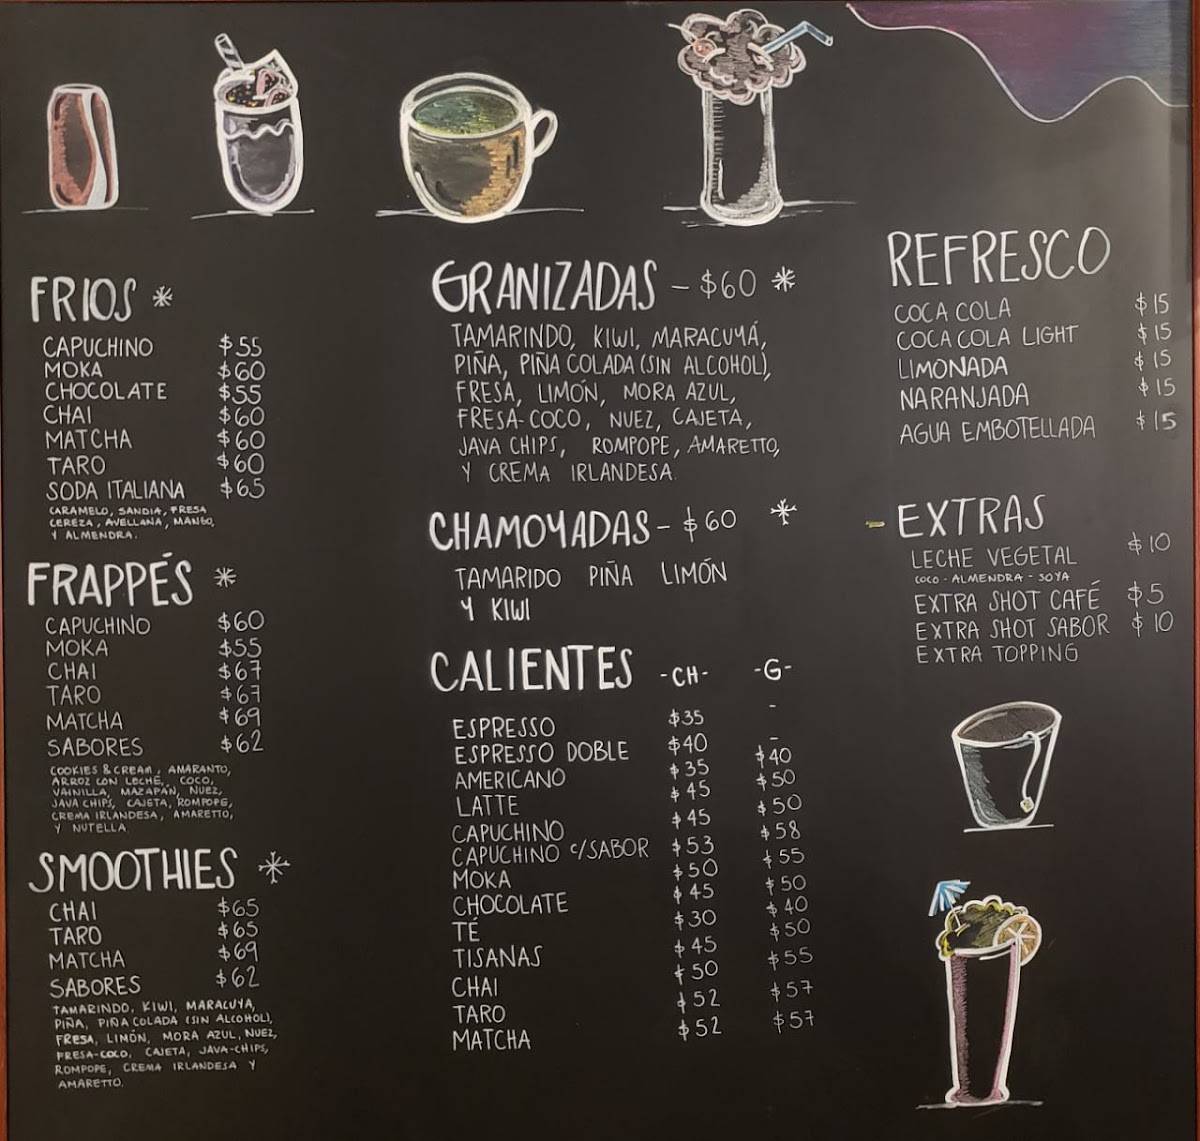 FRIOS *
CAPUCHINO $55
MOKA $60
CHOCOLATE $55
CHAI $60
MATCHA $60
TARO $60
SODA ITALIANA $65
CARAMELO, SANDIA, FRESA
CEREZA, AVELLANA, MANGO,
Y ALMENDRA.
FRAPPÉS *
CAPUCHINO $60
MOKA $55
CHAI $67
TARO $67
MATCHA $69
SABORES $62
COOKIES & CREAM, AMARANTO,
ARROZ CON LECHE, COCO,
VAINILLA, MAZAPÁN, NUEZ,
JAVA CHIPS, CAJETA, ROMPOPE,
CREMA IRLANDESA, AMARETTO,
Y NUTELLA.
SMOOTHIES *
CHAI $65
TARO $65
MATCHA $69
SABORES $62
TAMARINDO, KIWI, MARACUYA,
PIÑA, PIÑA COLADA (SIN ALCOHOL),
FRESA, LIMÓN, MORA AZUL, NUEZ,
FRESA-COCO, CAJETA, JAVA-CHIPS,
ROMPOPE, CREMA IRLANDESA Y
AMARETTO.
GRANIZADAS - $60 *
TAMARINDO, KIWI, MARACUYÁ,
PIÑA, PIÑA COLADA (SIN ALCOHOL),
FRESA, LIMÓN, MORA AZUL,
FRESA-COCO, NUEZ, CAJETA,
JAVA CHIPS, ROMPOPE, AMARETTO,
Y CREMA IRLANDESA.
CHAMOYADAS - $60 *
TAMARIDO PIÑA LIMÓN
Y KIWI
CALIENTES -CH- -G-
ESPRESSO $35 -
ESPRESSO DOBLE $40 -
AMERICANO $35 $40
LATTE $45 $50
CAPUCHINO $45 $50
CAPUCHINO C/SABOR $53 $58
MOKA $50 $55
CHOCOLATE $45 $50
TÉ $30 $40
TISANAS $45 $50
CHAI $50 $55
TARO $52 $57
MATCHA $52 $57
REFRESCO
COCA COLA $15
COCA COLA LIGHT $15
LIMONADA $15
NARANJADA $15
AGUA EMBOTELLADA $15
- EXTRAS
LECHE VEGETAL $10
COCO - ALMENDRA - SOYA
EXTRA SHOT CAFÉ $5
EXTRA SHOT SABOR $10
EXTRA TOPPING